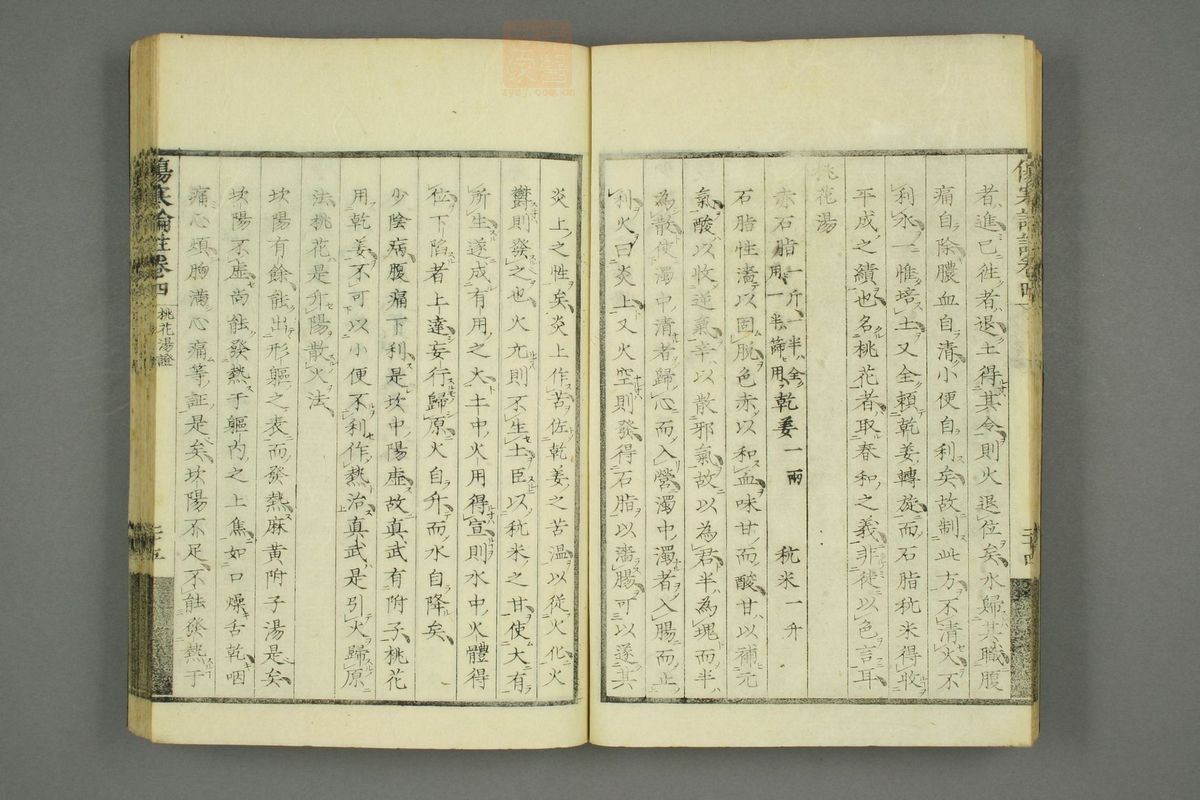 者進已徃者退土得其令則火退位矣水歸其職腹
痛自除膿血自清小便自利矣故制此方不清火不
利水一惟培土又全賴乾姜轉旋而石脂秔米得收
平成之績也名桃花者取春和之義非徒以色言耳
桃花湯
赤石脂一斤一半全用一半篩用乾姜一兩 秔米一升
石脂性濇以固脫色赤以和血味甘而酸甘以補元
氣酸以收逆氣辛以散邪氣故以為君半為塊而半
為散使濁中清者歸心而入營濁中濁者入腸而止
利火曰炎上又火空則發得石脂以濇腸可以遂其
炎上之性矣炎上作苦佐乾姜之苦溫以從火化火
鬱則發之也火亢則不生土臣以秔米之甘使火有
所生遂成有用之火土中火用得宣則水中火體得
位下陷者上達妄行歸原火自升而水自降矣
少陰病腹痛下利是坎中陽虛故真武有附子桃花
用乾姜不可以小便不利作熱治真武是引火歸原
法桃花是升陽散火法
坎陽有餘能出形軀之表而發熱麻黃附子湯是矣
坎陽不虛尚能發熱于軀內之上焦如口燥舌乾咽
痛心煩胸滿心痛等証是矣坎陽不足不能發熱于
傷寒論註卷四 桃花湯證 二十五